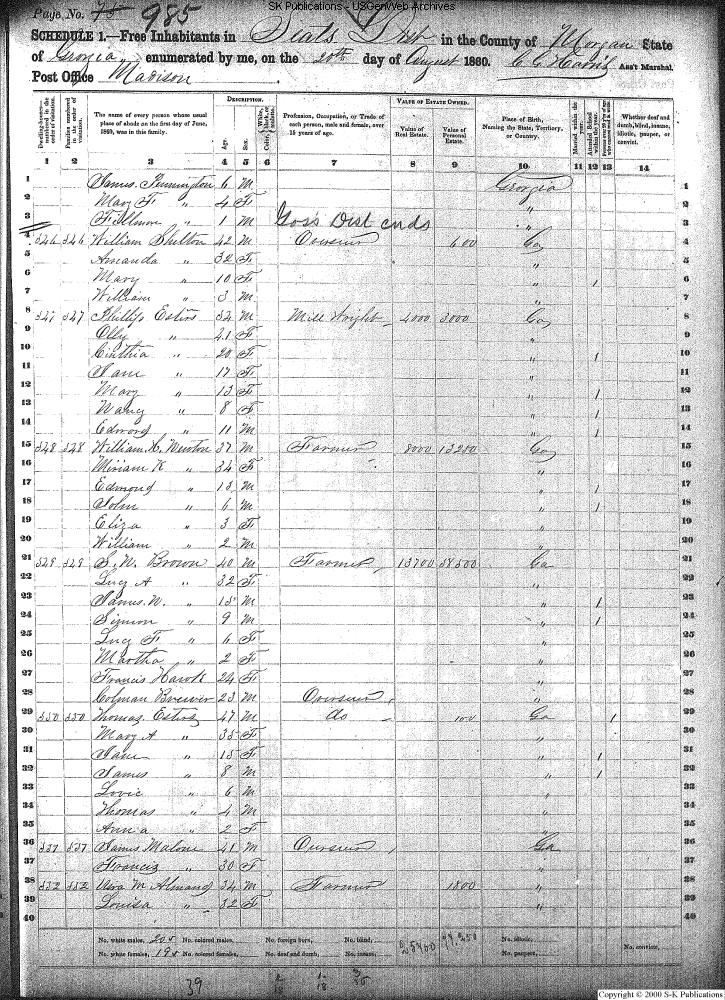 S-K Publications - USGenWeb Archives
Page No. 75 985
SCHEDULE 1.—Free Inhabitants in Seats Dist in the County of Morgan State
of Georgia enumerated by me, on the 20th day of August 1860. C C Harris Ass't Marshal.
Post Office Madison
Dwelling-houses—numbered in the order of visitation.
Families numbered in the order of visitation.
The name of every person whose usual place of abode on the first day of June, 1860, was in this family.
DESCRIPTION.
Age.
Sex.
Color, White, black, or mulatto.
Profession, Occupation, or Trade of each person, male and female, over 15 years of age.
VALUE OF ESTATE OWNED.
Value of Real Estate.
Value of Personal Estate.
Place of Birth, Naming the State, Territory, or Country.
Married within the year.
Attended School within the year.
Whether deaf and dumb, blind, insane, idiotic, pauper, or convict.
1 2 3 4 5 6 7 8 9 10 11 12 13 14
1 James Pennington 6 M Georgia 1
2 Mary F " 4 F " 2
3 Fillmon " 1 M Gos's Dist ends " 3
4 546 546 William Shelton 42 M Overseer 600 Ga 4
5 Amanda " 32 F " 5
6 Mary " 10 F " 1 6
7 William " 3 M " 7
8 547 547 Phillip Estes 52 M Mill Wright 4000 3000 Ga 8
9 Olly " 41 F " 9
10 Cinthia " 20 F " 1 10
11 Jane " 17 F " 11
12 Mary " 13 F " 1 12
13 Nancy " 8 F " 1 13
14 Edmond " 11 M " 1 14
15 548 548 William H. Newton 37 M Farmer 8000 13250 Ga 15
16 Miriam K " 34 F " 16
17 Edmond " 13 M " 1 17
18 John " 6 M " 1 18
19 Eliza " 3 F " 19
20 William " 2 M " 20
21 549 549 S. N. Brown 40 M Farmer 13700 58500 Ga 21
22 Lucy A " 32 F " 22
23 James N. " 15 M " 1 23
24 Simion " 9 M " 1 24
25 Lucy F " 6 F " 25
26 Martha " 2 F " 26
27 Francis Hawk 24 F " 27
28 Colman Brewer 23 M Overseer " 28
29 550 550 Thomas Estes 47 M do 100 Ga 1 29
30 Mary A " 35 F " 30
31 Jane " 15 F " 1 31
32 James " 8 M " 1 32
33 Lovic " 6 M " 33
34 Thomas " 4 M " 34
35 Anna " 2 F " 35
36 551 551 James Malone 41 M Overseer Ga 36
37 Francis " 30 F " 37
38 552 552 M Almand 34 M Farmer 1800 " 38
39 Louisa " 32 F " 39
40 40
No. white males, 20 No. colored males, No. foreign born, No. blind, No. idiotic, No. convicts,
No. white females, 19 No. colored females, No. deaf and dumb, No. insane, No. paupers,
39
Copyright © 2000 S-K Publications